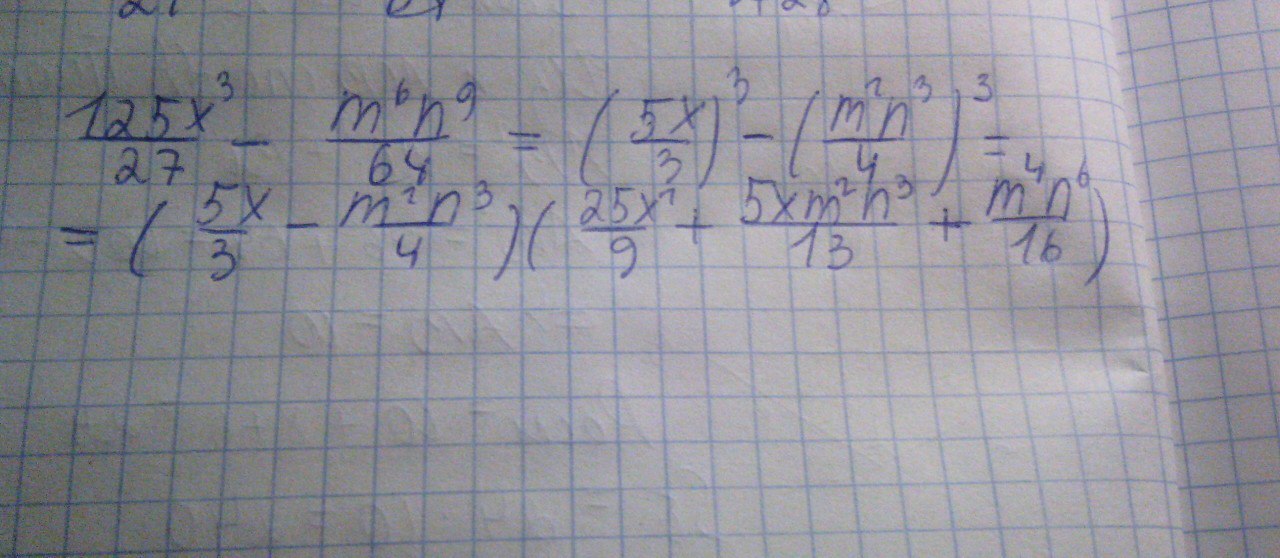 125x³/27 − m⁶n⁹/64 = (5x/3)³ − (m²n³/4)³ =
= (5x/3 − m²n³/4)(25x²/9 + 5xm²n³/13 + m⁴n⁶/16)